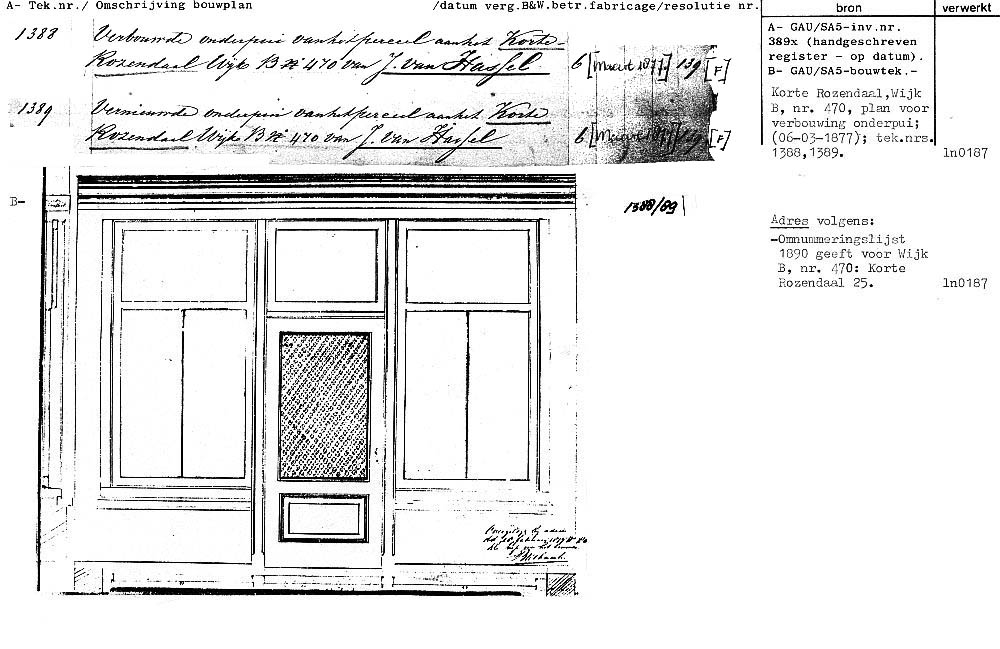 A- Tek.nr./ Omschrijving bouwplan /datum verg.B&W.betr.fabricage/resolutie nr. bron verwerkt
1388 Verbouwde onderpui van het perceel aan het Korte-
Rozendaal Wijk B № 470 van J. van Hassel 6 [Maart 1877] 139 [F]
1389 Vernieuwde onderpui van het perceel aan het Korte
Rozendaal Wijk B № 470 van J. van Hassel 6 [Maart 1877] 139 [F]
A- GAU/SA5-inv.nr.
389x (handgeschreven
register - op datum).
B- GAU/SA5-bouwtek.-
Korte Rozendaal,Wijk
B, nr. 470, plan voor
verbouwing onderpui;
(06-03-1877); tek.nrs.
1388,1389. ln0187
B-
1388/89
Adres volgens:
-Omnummeringslijst
1890 geeft voor Wijk
B, nr. 470: Korte
Rozendaal 25. ln0187